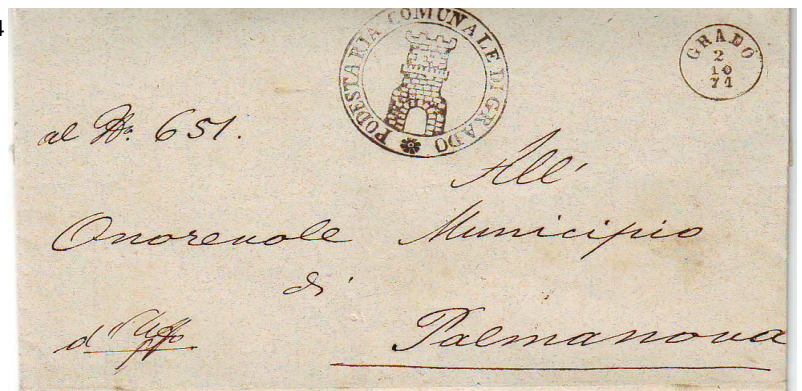 4
PODESTARIA COMUNALE DI GRADO
GRADO
2
10
71
al No. 651.
All'
Onorevole Municipio
di
Palmanova